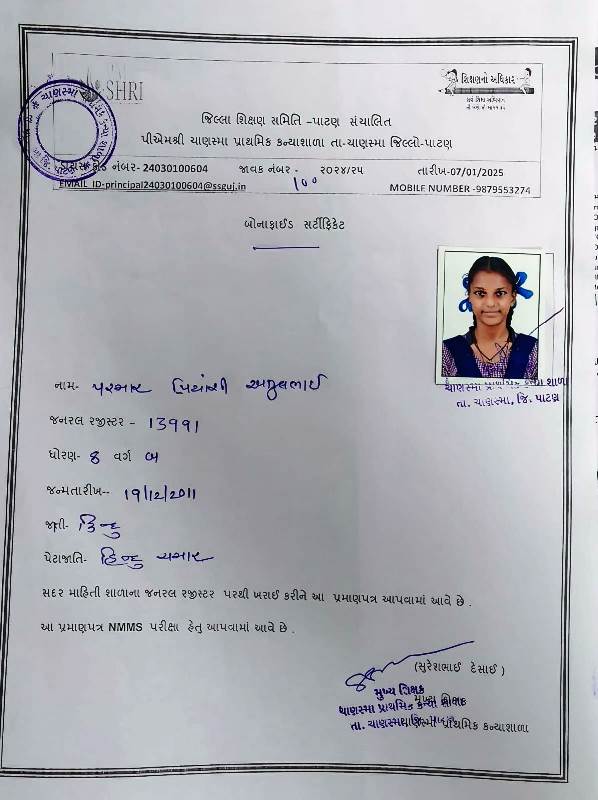 SHRI
શિક્ષણનો અધિકાર
જિલ્લા શિક્ષણ સમિતિ –પાટણ સંચાલિત
પીએમશ્રી ચાણસ્મા પ્રાથમિક કન્યાશાળા તા-ચાણસ્મા જિલ્લો-પાટણ
નંબર- 24030100604 જાવક નંબર - ૨૦૨૪/૨૫ તારીખ-07/01/2025
100
EMAIL ID-principal24030100604@ssguj.in MOBILE NUMBER -9879553274
બોનાફાઈડ સર્ટીફિકેટ
ચાણસ્મા પ્રાથમિક કન્યા શાળા
તા. ચાણસ્મા, જિ. પાટણ
નામ- પરમાર પ્રિયાંશી
જનરલ રજીસ્ટર - 13991
ધોરણ- 8 વર્ગ બ
જન્મતારીખ-- 19/12/2011
જાતી- હિન્દુ
પેટાજાતિ- હિન્દુ ચમાર
સદર માહિતી શાળાના જનરલ રજીસ્ટર પરથી ખરાઈ કરીને આ પ્રમાણપત્ર આપવામાં આવે છે .
આ પ્રમાણપત્ર NMMS પરીક્ષા હેતુ આપવામાં આવે છે .
(સુરેશભાઈ દેસાઈ )
મુખ્ય શિક્ષક
ચાણસ્મા પ્રાથમિક કન્યા શાળા
તા. ચાણસ્મા પ્રાથમિક કન્યાશાળા